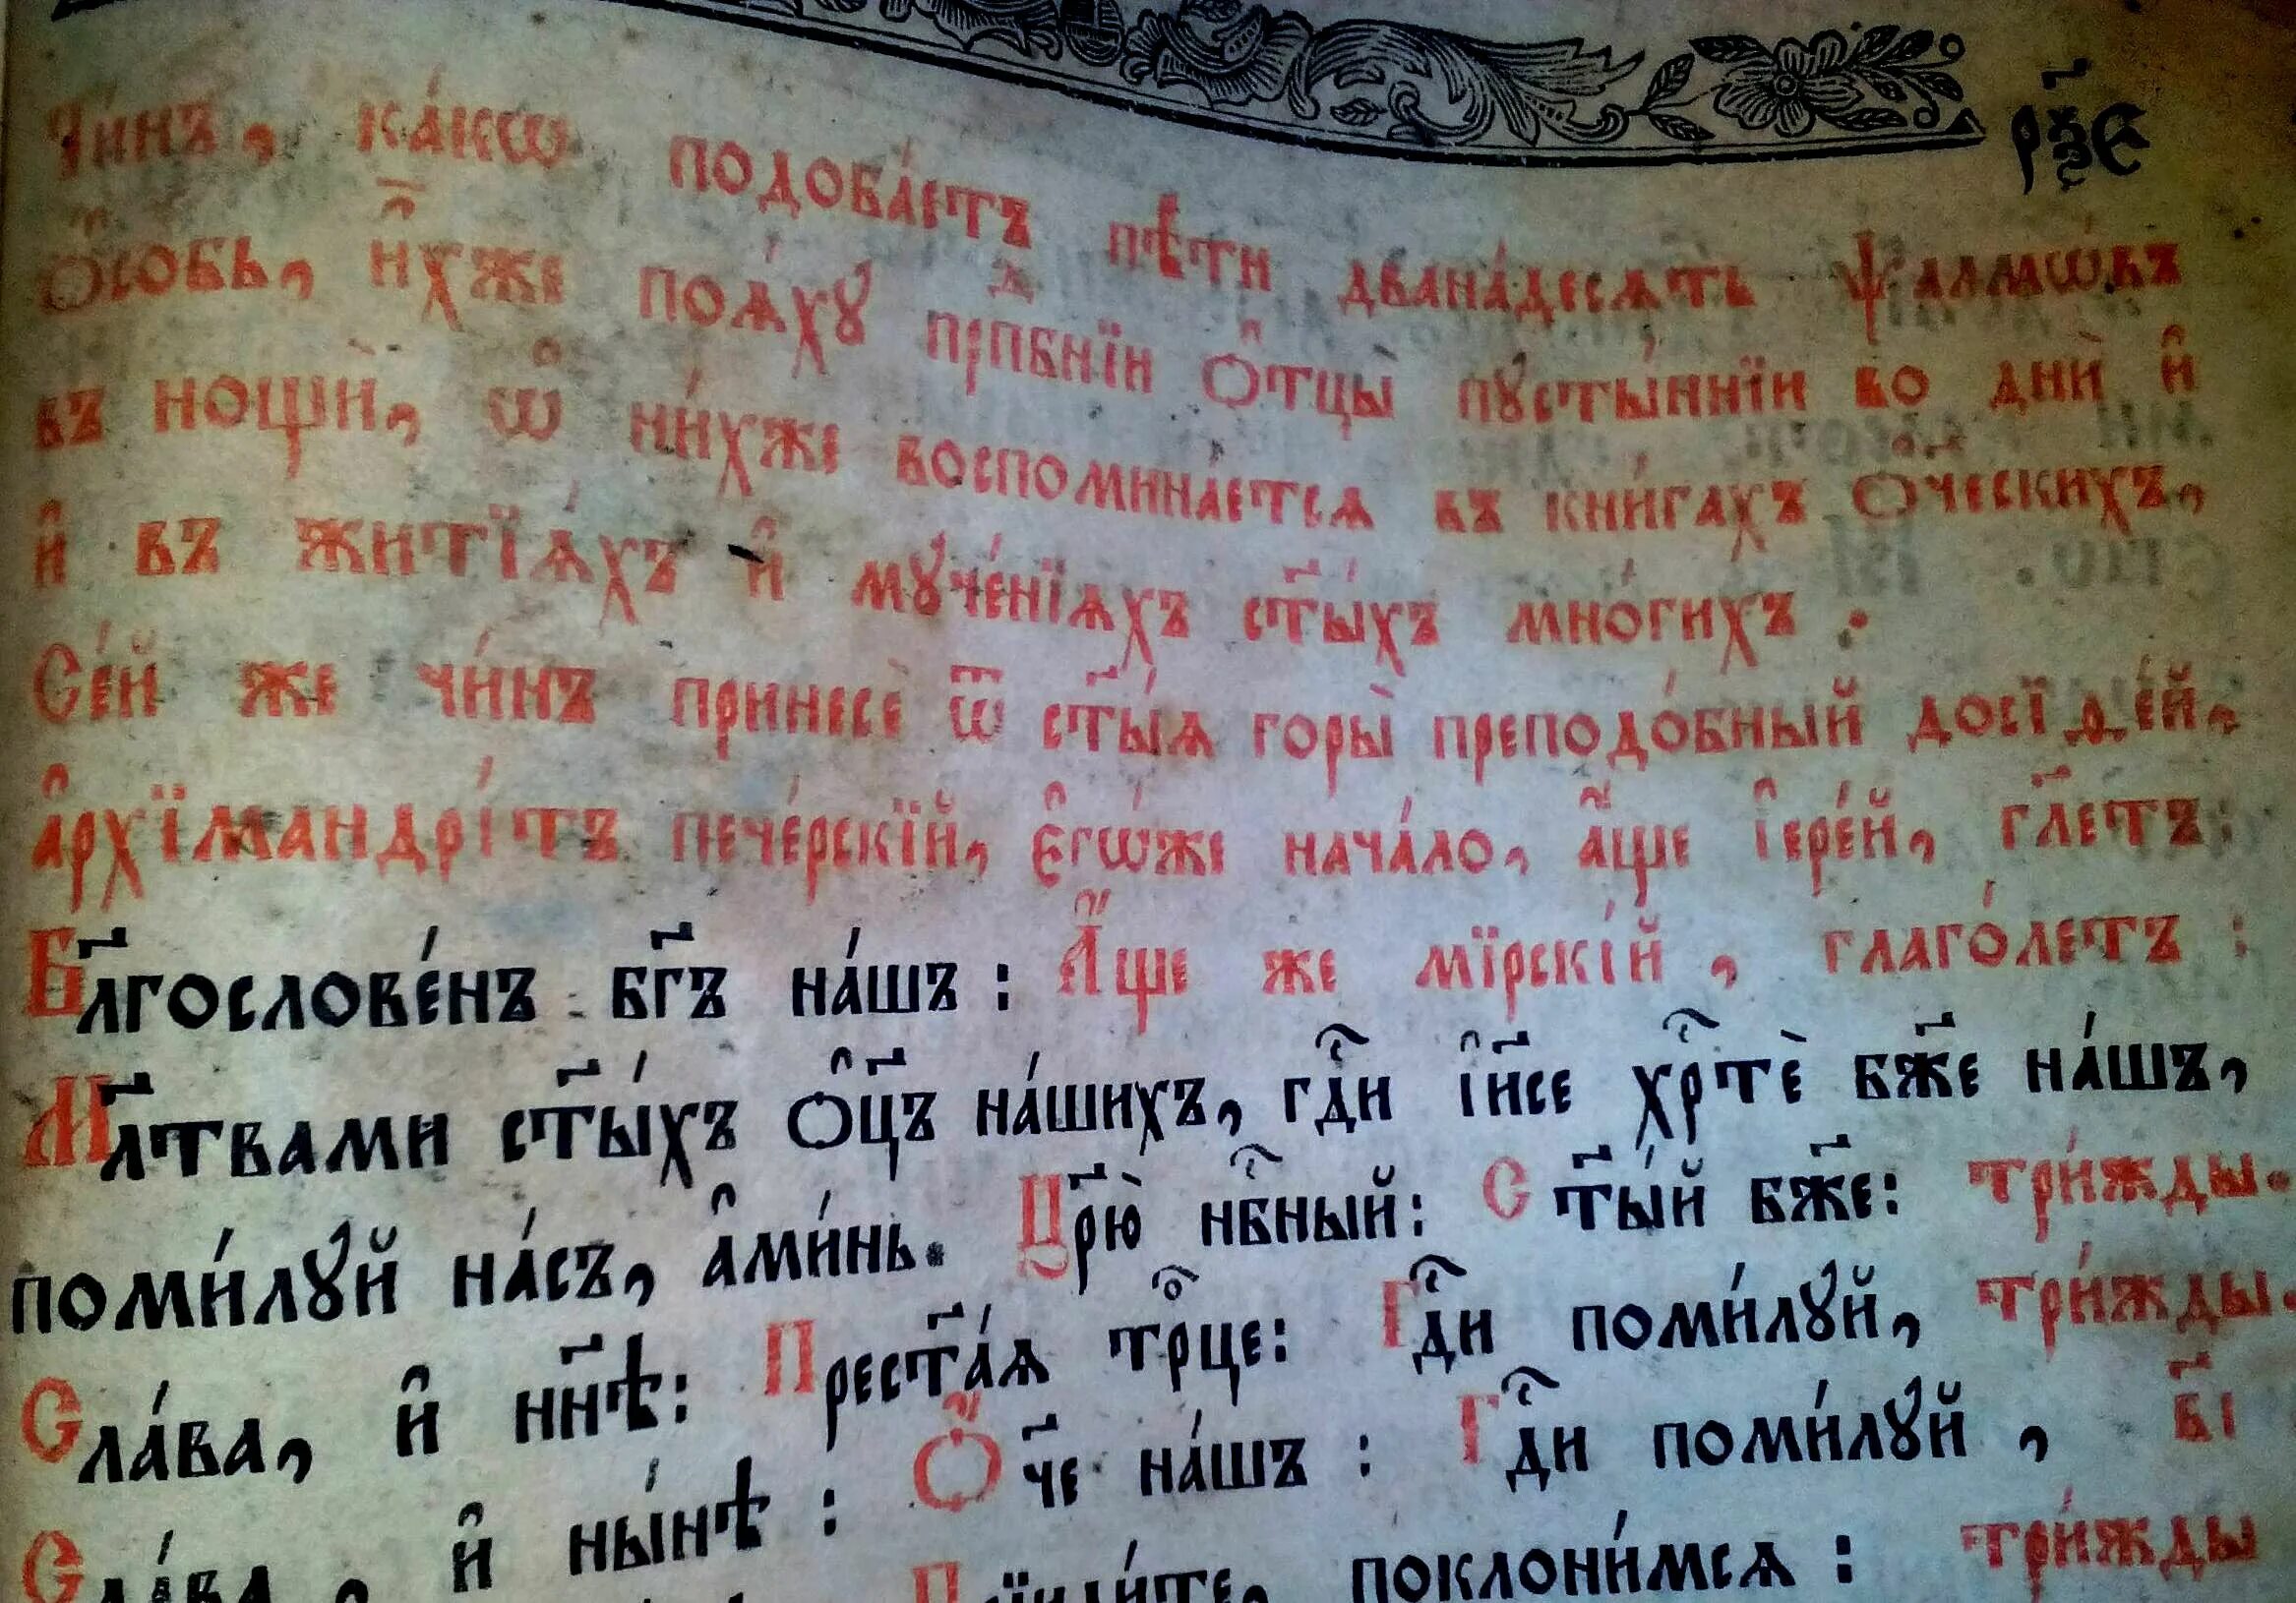 рѯ҃є
Чи́нъ, ка́кѡ подоба́етъ пѣ́ти двана́десѧть ѱалмѡ́въ
ѻ҆со́бь, и҆̀хже поѧ́хꙋ прпⷣбнїи ѻ҆тцы̀ пꙋсты́ннїи во днѝ и҆
въ нощѝ, ѡ҆ ни́хже воспомина́етсѧ въ кни́гахъ ѻ҆ч҃ескихъ,
и҆ въ житїѧ́хъ и҆ мꙋче́нїѧхъ ст҃ы́хъ мно́гихъ.
Се́й же чи́нъ принесѐ ѿ ст҃ы́ѧ горы̀ преподо́бный досїѳе́й,
а҆рхїмандрі́тъ пече́рскїй, є҆гѡ́же нача́ло, а҆́ще і҆ере́й, гл҃етъ:
Бл҃гослове́нъ бг҃ъ на́шъ: А҆́ще же мїрскі́й, глаго́летъ:
Мл҃твами ст҃ы́хъ ѻ҆ц҃ъ на́шихъ, гдⷭ҇и і҆и҃се хрⷭ҇тѐ бж҃е на́шъ,
поми́лꙋй на́съ, а҆ми́нь. Цр҃ю̀ нбⷭ҇ный: Ст҃ы́й бж҃е: три́жды.
Сла́ва, и҆ нн҃ѣ: Прест҃а́ѧ трⷪ҇це: Гдⷭ҇и поми́лꙋй, три́жды.
Сла́ва, и҆ ны́нѣ: Ѻ҆́ч҃е на́шъ: Гдⷭ҇и поми́лꙋй, в҃і
Прїиди́те, поклони́мсѧ: три́жды